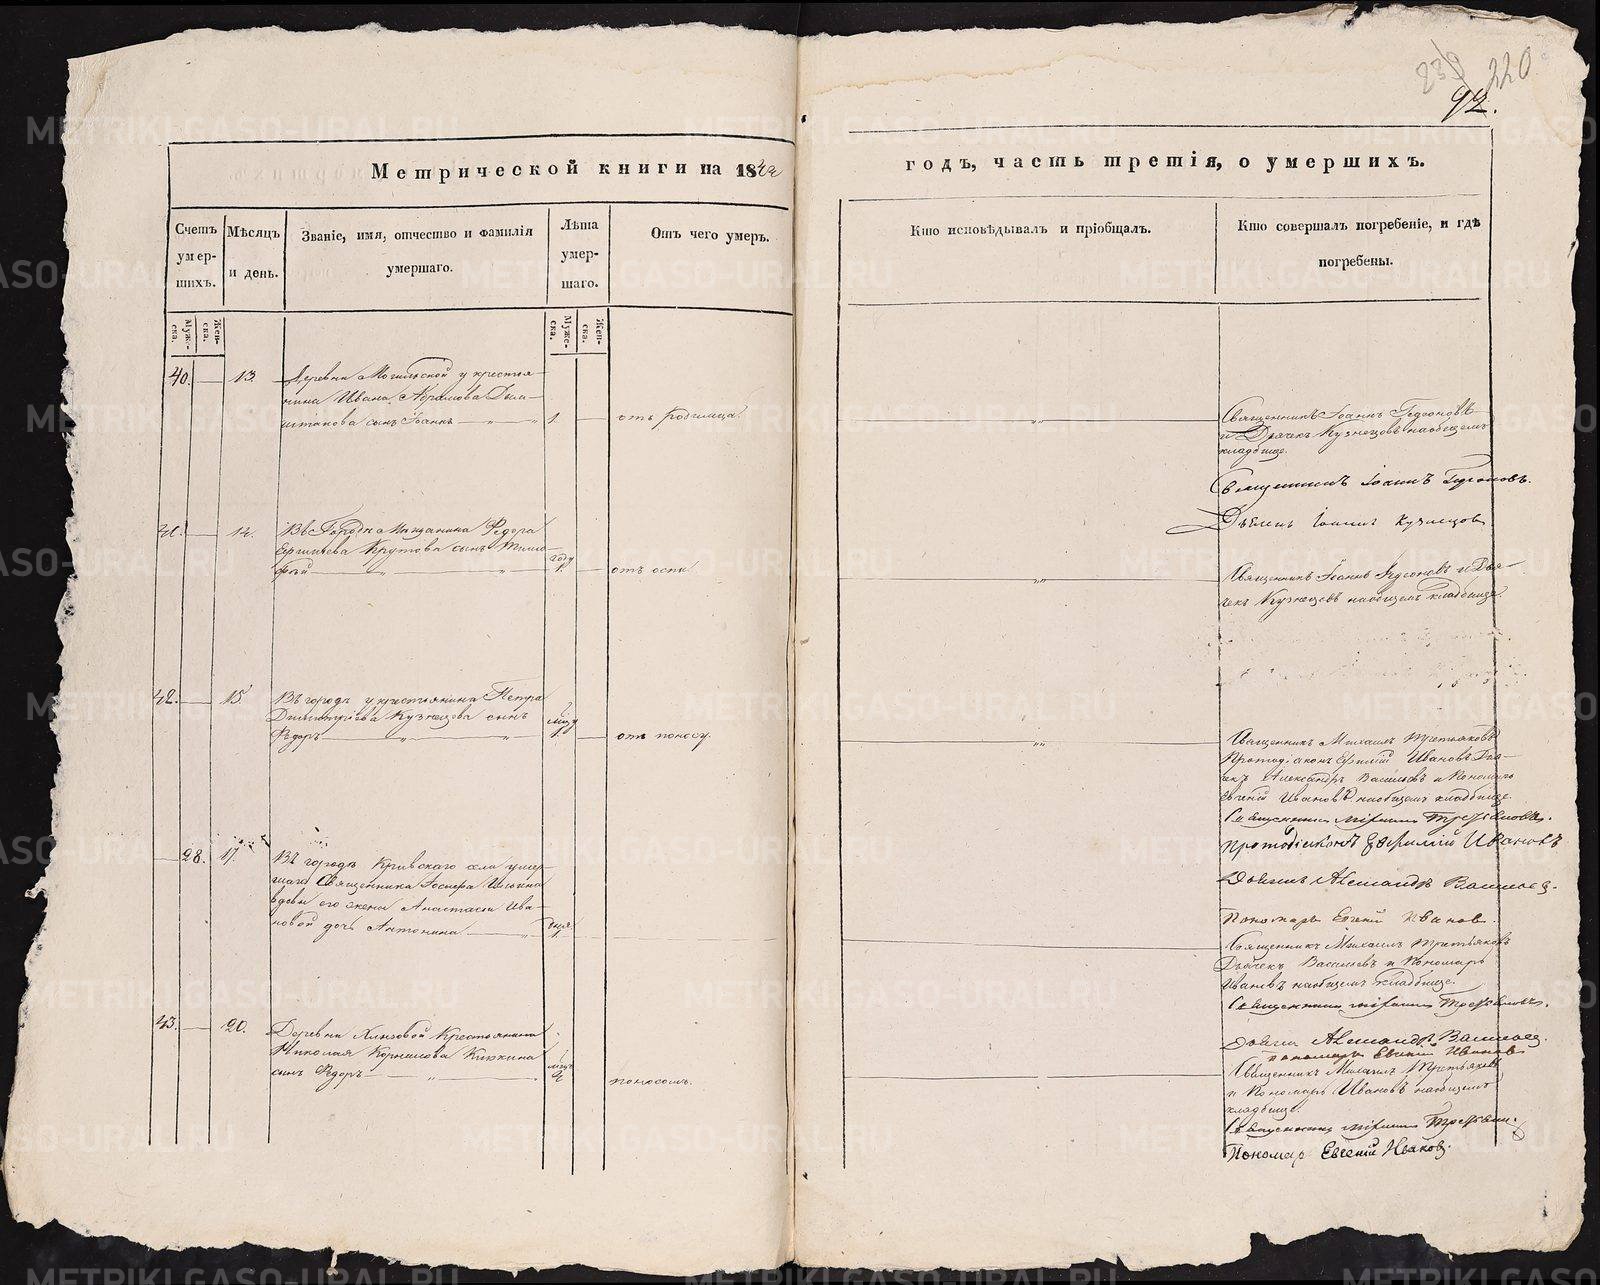 230 220
92.
Метрической книги на 18
годъ, часть третія, о умершихъ.
Счетъ умер-шихъ.
Мѣсяцъ и день.
Званіе, имя, отчество и фамилія умершаго.
Лѣта умер-шаго.
Отъ чего умеръ.
Кто исповѣдывалъ и пріобщалъ.
Кто совершалъ погребеніе, и гдѣ погребены.
Муже-ска.
Жен-ска.
Муже-ска.
Жен-ска.
40. 13.
Деревни Могильской у крестья-
нина Ивана Абрамова
сынъ Іоаннъ 1
отъ родимца.
Священникъ Іоаннъ Гедеоновъ
и Дьячекъ Кузнецовъ на общемъ
кладбище.
Священникъ Іоаннъ Гедеоновъ.
Дьячекъ Іоаннъ Кузнецов
41. 14.
Въ Городѣ Мещанина Ѳедора
Крутова сынъ Тимо-
фей году 1.
отъ оспы
Священникъ Іоаннъ Гедеоновъ и Дья-
чекъ Кузнецовъ на общемъ кладбище.
42. 15.
Въ городѣ у крестьянина Петра
Димитріева Кузнецова сынъ
Ѳедоръ
отъ поносу.
Священникъ Михаилъ Третьяковъ
Протодіаконъ Евфимій Ивановъ Дья-
чекъ Александръ Васильевъ и Пономарь
Евгеній Ивановъ на общемъ кладбище.
Священникъ Михаилъ Третьяковъ.
Протодіаконъ Евфимій Ивановъ
Дьячекъ Александръ Васильев.
Пономарь Евгеній Иванов.
28. 17.
Въ городѣ Кривскаго села умер-
шаго Священника Іосифа Ильина
вдовы его жены Анастасіи Ива-
новой дочь Антонина
Священникъ Михаилъ Третьяковъ
Дьячекъ Васильевъ и Пономарь
Ивановъ на общемъ кладбище.
Священникъ Михаилъ Третьяковъ.
Дьячекъ Александръ Васильев.
Пономарь Евгеній Иванов
43. 20.
Деревни Хлызовой Крестьянина
Николая Корнилова
сынъ Ѳедоръ 2
поносомъ.
Священникъ Михаилъ Третьяковъ
и Пономарь Ивановъ на общемъ
кладбище.
Священникъ Михаилъ Третьяков.
Пономарь Евгеній Иванов.
METRIKI.GASO-URAL.RU